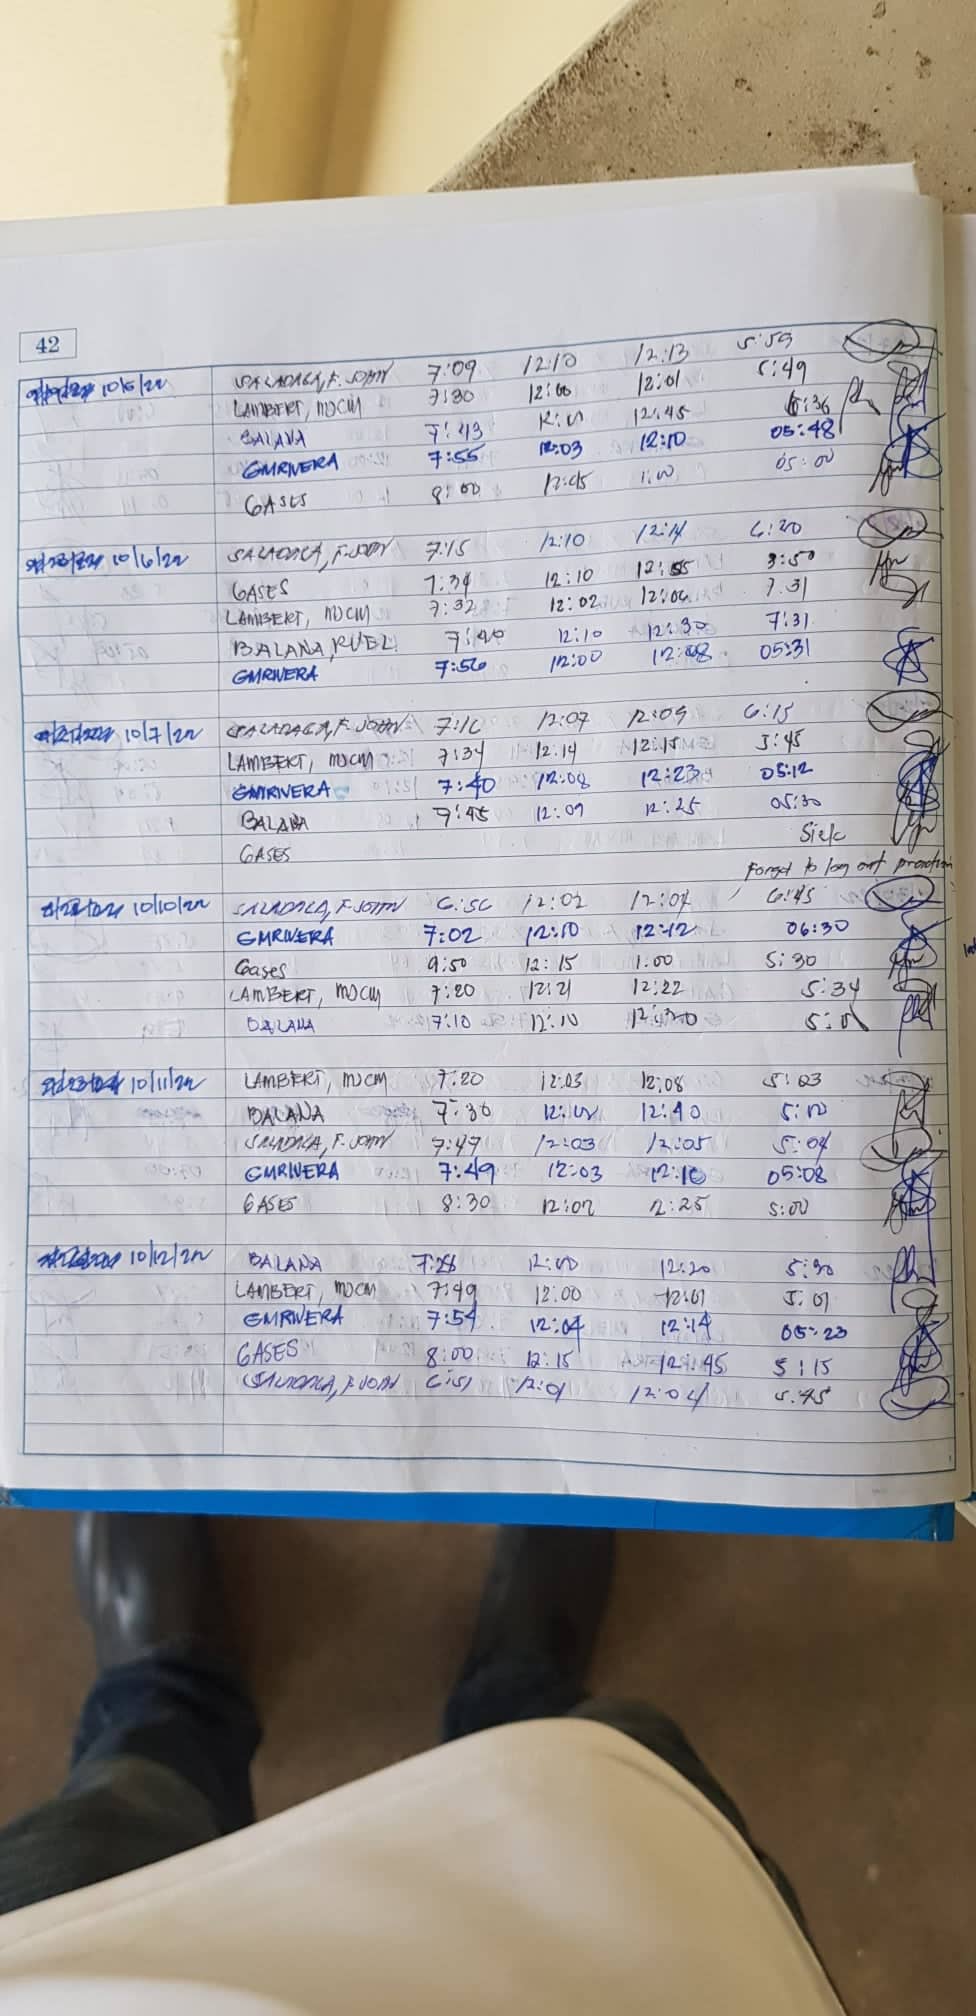 42
10/5/22 SALADAGA, F. JOHN 7:09 12:10 12:13 5:59
LAMBERT, MJCM 7:30 12:00 12:01 5:49
BALANA 7:43 12:45 6:36
GMRIVERA 7:55 12:03 12:10 05:48
GASES 8:00 12:05 1:00 05:00
10/6/22 SALADAGA, F. JOHN 7:15 12:10 12:14 6:20
GASES 7:34 12:10 12:55
LAMBERT, MJCM 7:32 12:02 12:06 7:31
BALANA, RUEL 7:40 12:10 12:30 7:31
GMRIVERA 7:56 12:00 12:08 05:31
10/7/22 SALADAGA, F. JOHN 12:07 12:09 6:15
LAMBERT, MJCM 7:34 12:14 12:15 5:45
GMRIVERA 7:40 12:08 12:23 05:12
BALANA 7:45 12:09 12:25 05:30
GASES Sick
Forgot to log out
10/10/22 SALADAGA, F. JOHN 6:56 12:02 12:04 6:45
GMRIVERA 7:02 12:10 12:12 06:30
Gases 9:50 12:15 1:00 5:30
LAMBERT, MJCM 7:20 12:21 12:22 5:34
BALANA 7:10 12:10 12:30
10/11/22 LAMBERT, MJCM 7:20 12:03 12:08 5:03
BALANA 7:30 12:40 5:00
SALADAGA, F. JOHN 7:47 12:03 12:05 5:04
GMRIVERA 7:49 12:03 12:10 05:08
GASES 8:30 12:02 12:25 5:00
10/12/22 BALANA 7:28 12:00 12:20 5:30
LAMBERT, MJCM 7:49 12:00 12:01 5:01
GMRIVERA 7:54 12:04 12:14 05:23
GASES 8:00 12:15 12:45 5:15
SALADAGA, F. JOHN 6:51 12:01 12:04 5:45